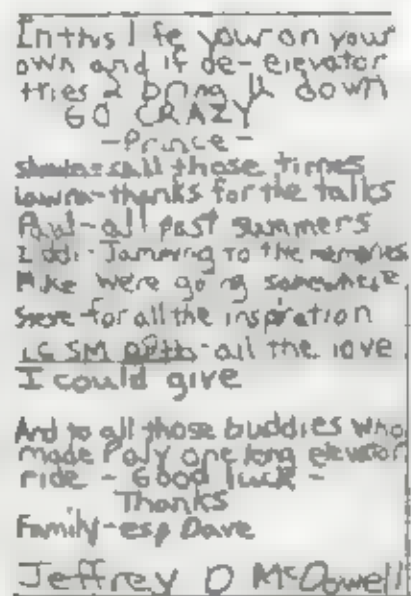 In this life your on your
own and if de-elevator
tries 2 bring U down
GO CRAZY
-Prince-
all those times
thanks for the talks
Paul-all past summers
Eddi-Jamming to the memories
Mike we're going somewhere
Steve for all the inspiration
LG SM all the love
I could give
And to all those buddies who
made Poly one long elevator
ride - Good luck -
Thanks
Family-esp Dave
Jeffrey O McDowell